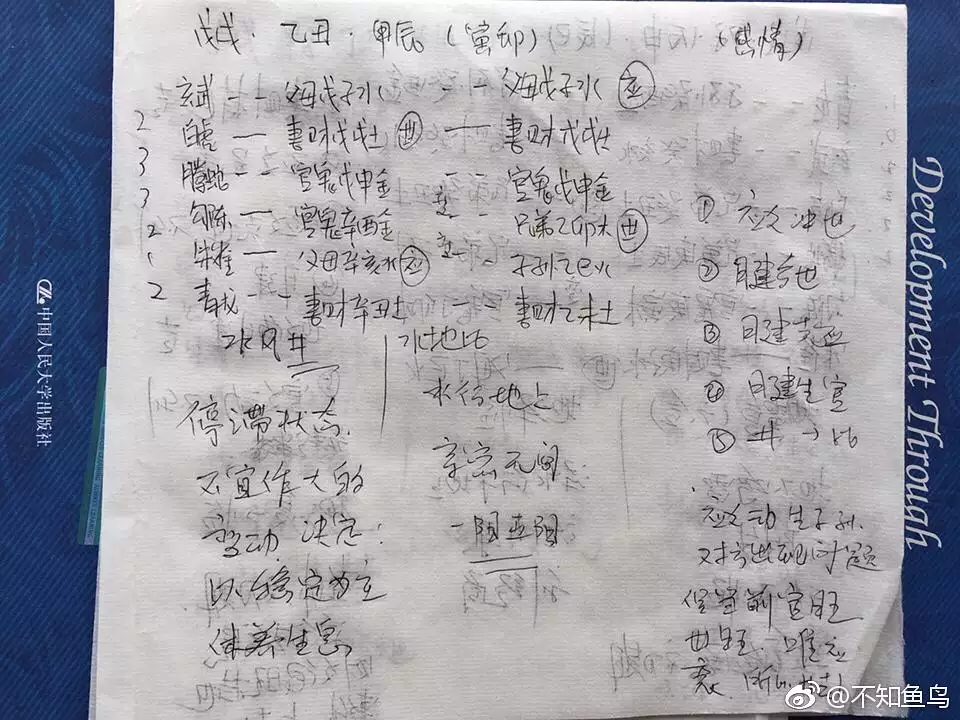 戊戌·乙丑·甲辰(寅卯) (感情)
玄武 -- 父母戊子水 -- 父母戊子水 应
2 白虎 — 妻财戊戌土 世 — 妻财戊戌土
3 腾蛇 -- 官鬼戊申金 -- 官鬼戊申金
3 勾陈 — 官鬼辛酉金 -- 兄弟乙卯木 世
2 朱雀 — 父母辛亥水 应 -- 子孙乙巳火
1
2 青龙 -- 妻财辛丑土 -- 妻财乙未土
水风井
水地比
停滞状态
不宜作大的
变动 决定:
以稳定为主
休养生息
水行地上
亲密无间
一阳五阴
① 应爻冲世
② 日建合世
③ 日建克应
④ 日建生官
⑤ 井→比
应爻动
对方出现问题
官旺
世旺. 唯应
衰.
Development Through
中国人民大学出版社
@不知鱼鸟